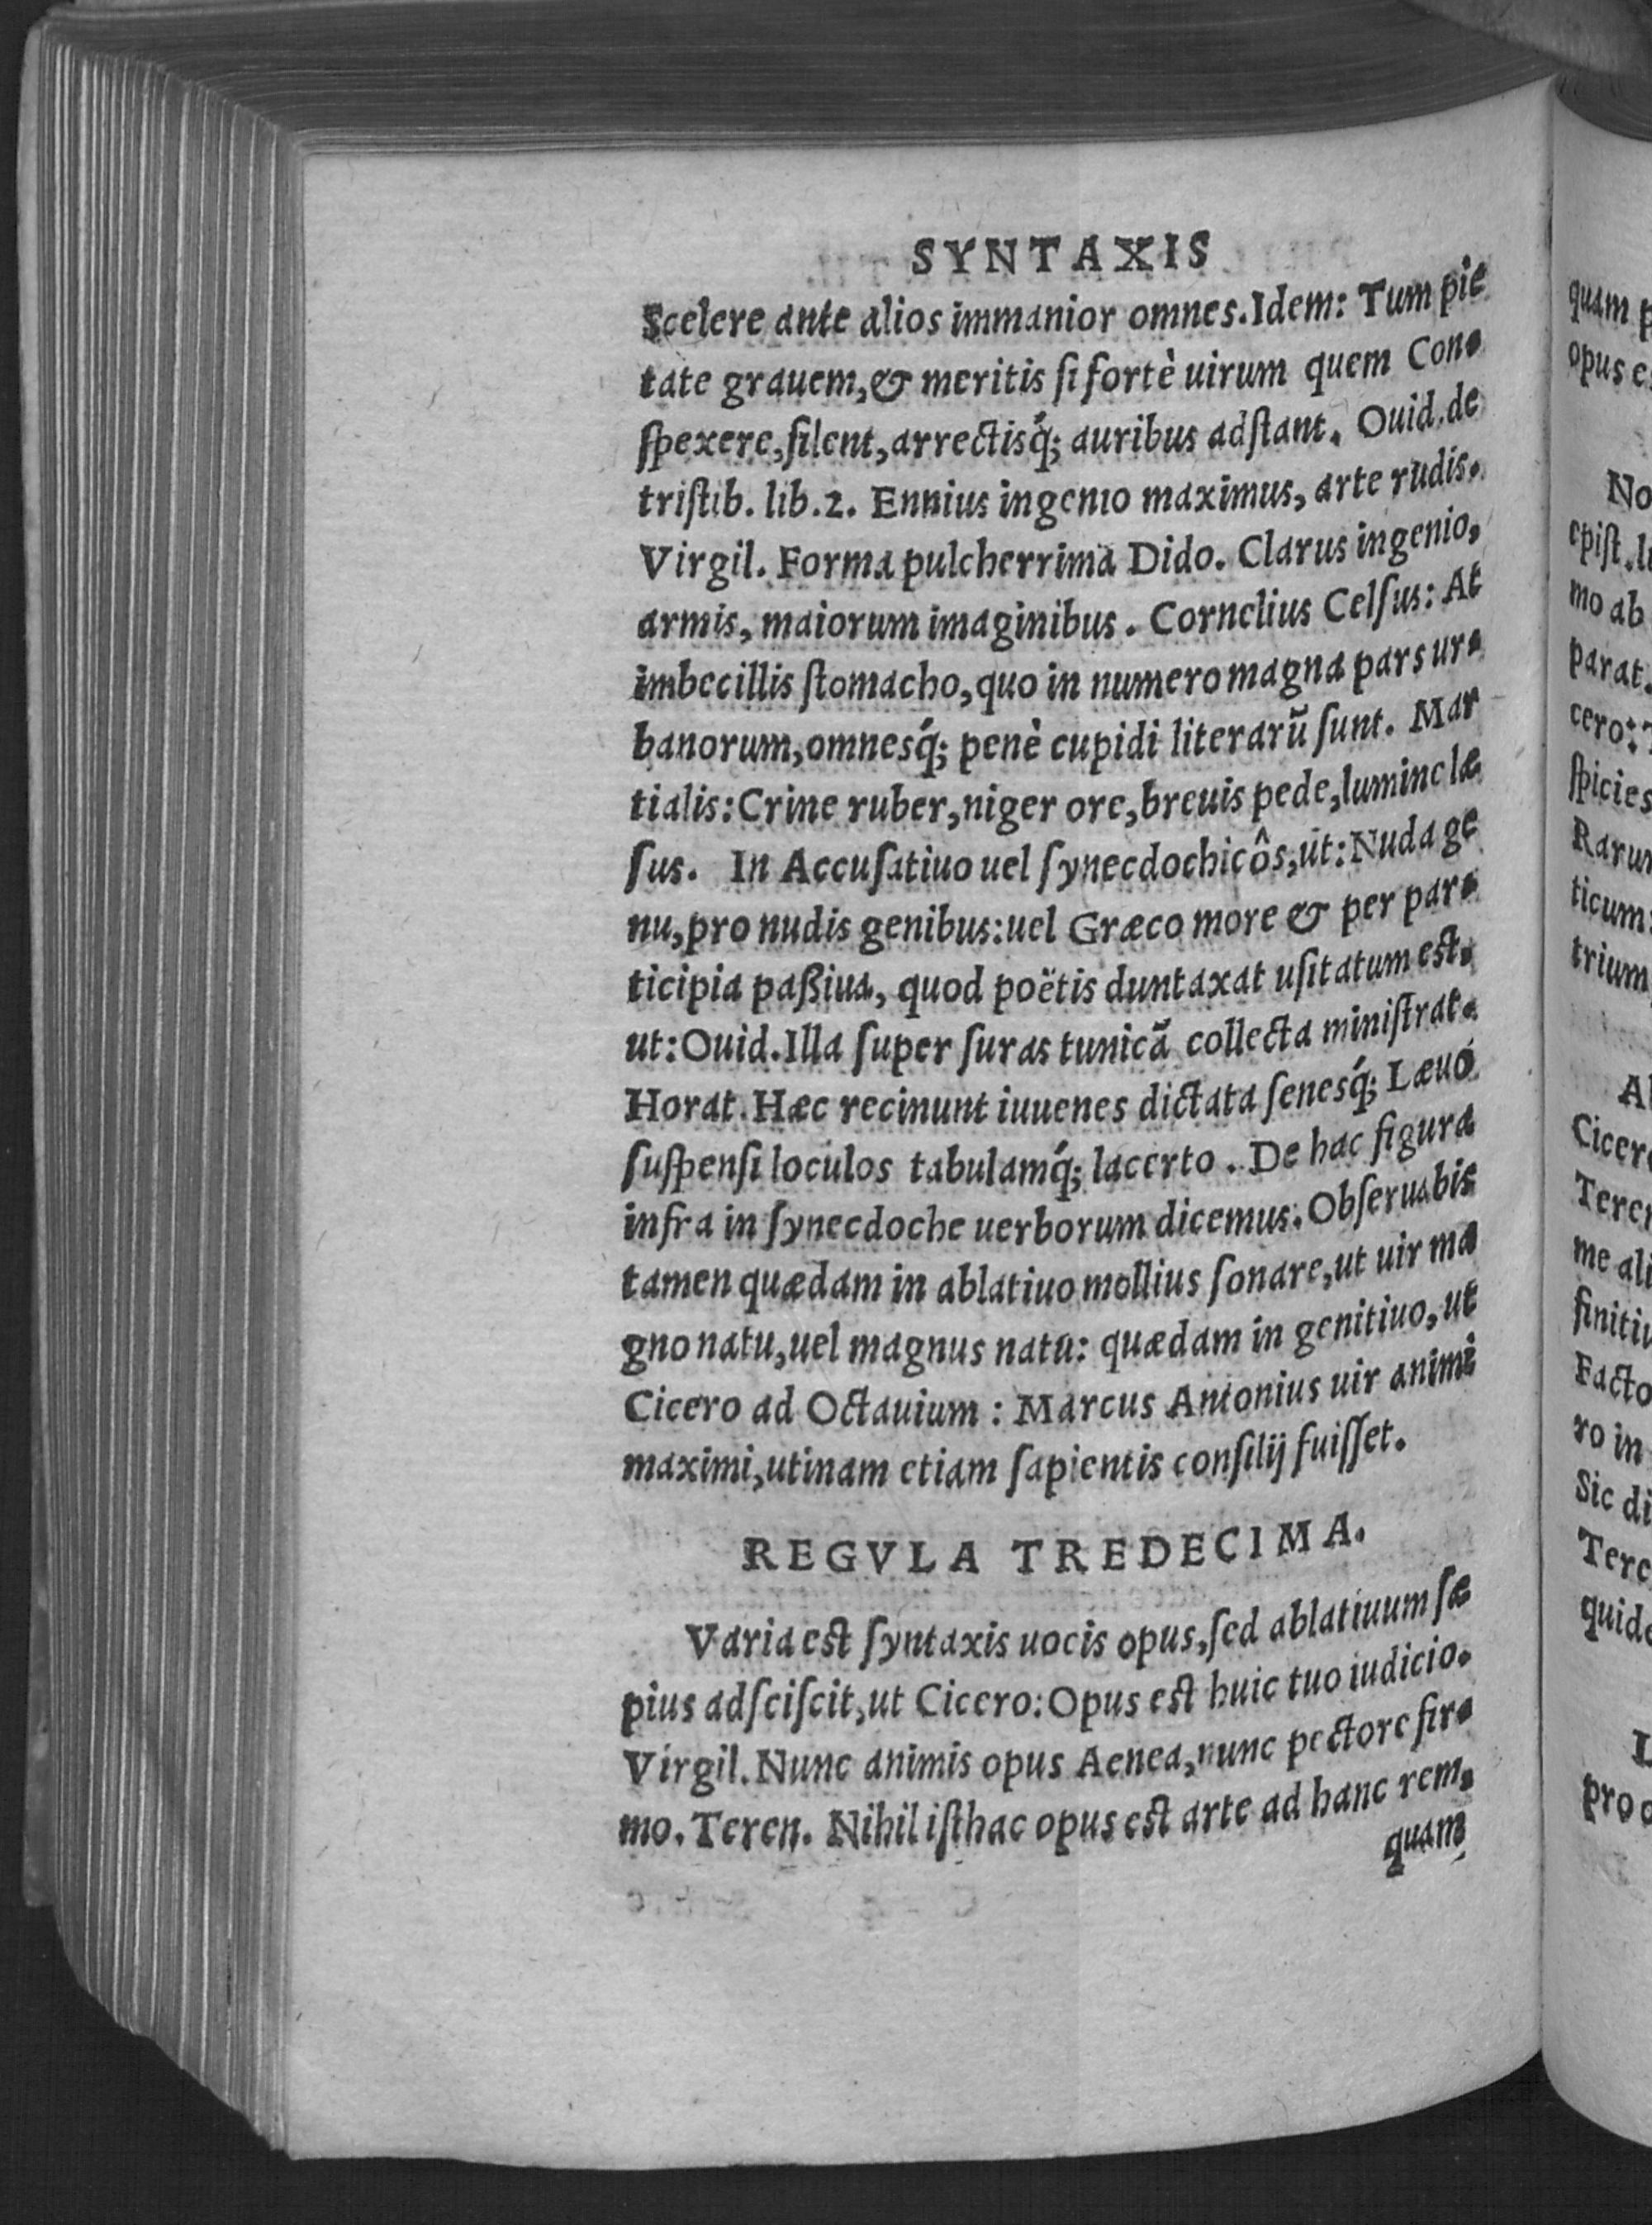 SYNTAXIS
Scelere ante alios immanior omnes. Idem: Tum pie
tate grauem, & meritis ſi fortè uirum quem Con-
ſpexere, ſilent, arrectisq́; auribus adſtant. Ouid. de
triſtib. lib. 2. Ennius ingenio maximus, arte rudis.
Virgil. Forma pulcherrima Dido. Clarus ingenio,
armis, maiorum imaginibus. Cornelius Celſus: At
imbecillis ſtomacho, quo in numero magna pars ur-
banorum, omnesq́; penè cupidi literarũ ſunt. Mar
tialis: Crine ruber, niger ore, breuis pede, lumine læ
ſus. In Accuſatiuo uel ſynecdochicôs, ut: Nuda ge
nu, pro nudis genibus: uel Græco more & per par-
ticipia paßiua, quod poëtis duntaxat uſitatum est.
ut: Ouid. Illa ſuper ſuras tunicã collecta miniſtrat.
Horat. Hæc recinunt iuuenes dictata ſenesq́; Læuo
ſuſpenſi loculos tabulamq́; lacerto. De hac figura
infra in ſynecdoche uerborum dicemus. Obſeruabis
tamen quædam in ablatiuo mollius ſonare, ut uir ma
gno natu, uel magnus natu: quædam in genitiuo, ut
Cicero ad Octauium: Marcus Antonius uir animi
maximi, utinam etiam ſapientis conſilij fuiſſet.
REGVLA TREDECIMA.
Varia est ſyntaxis uocis opus, ſed ablatiuum ſæ
pius adſciſcit, ut Cicero: Opus est huic tuo iudicio.
Virgil. Nunc animis opus Aenea, nunc pectore fir-
mo. Teren. Nihil iſthac opus est arte ad hanc rem,
quam
quam
No
mo ab
parat.
cero:
ſpicies
ticum:
trium
me ali
ro in
Sic di